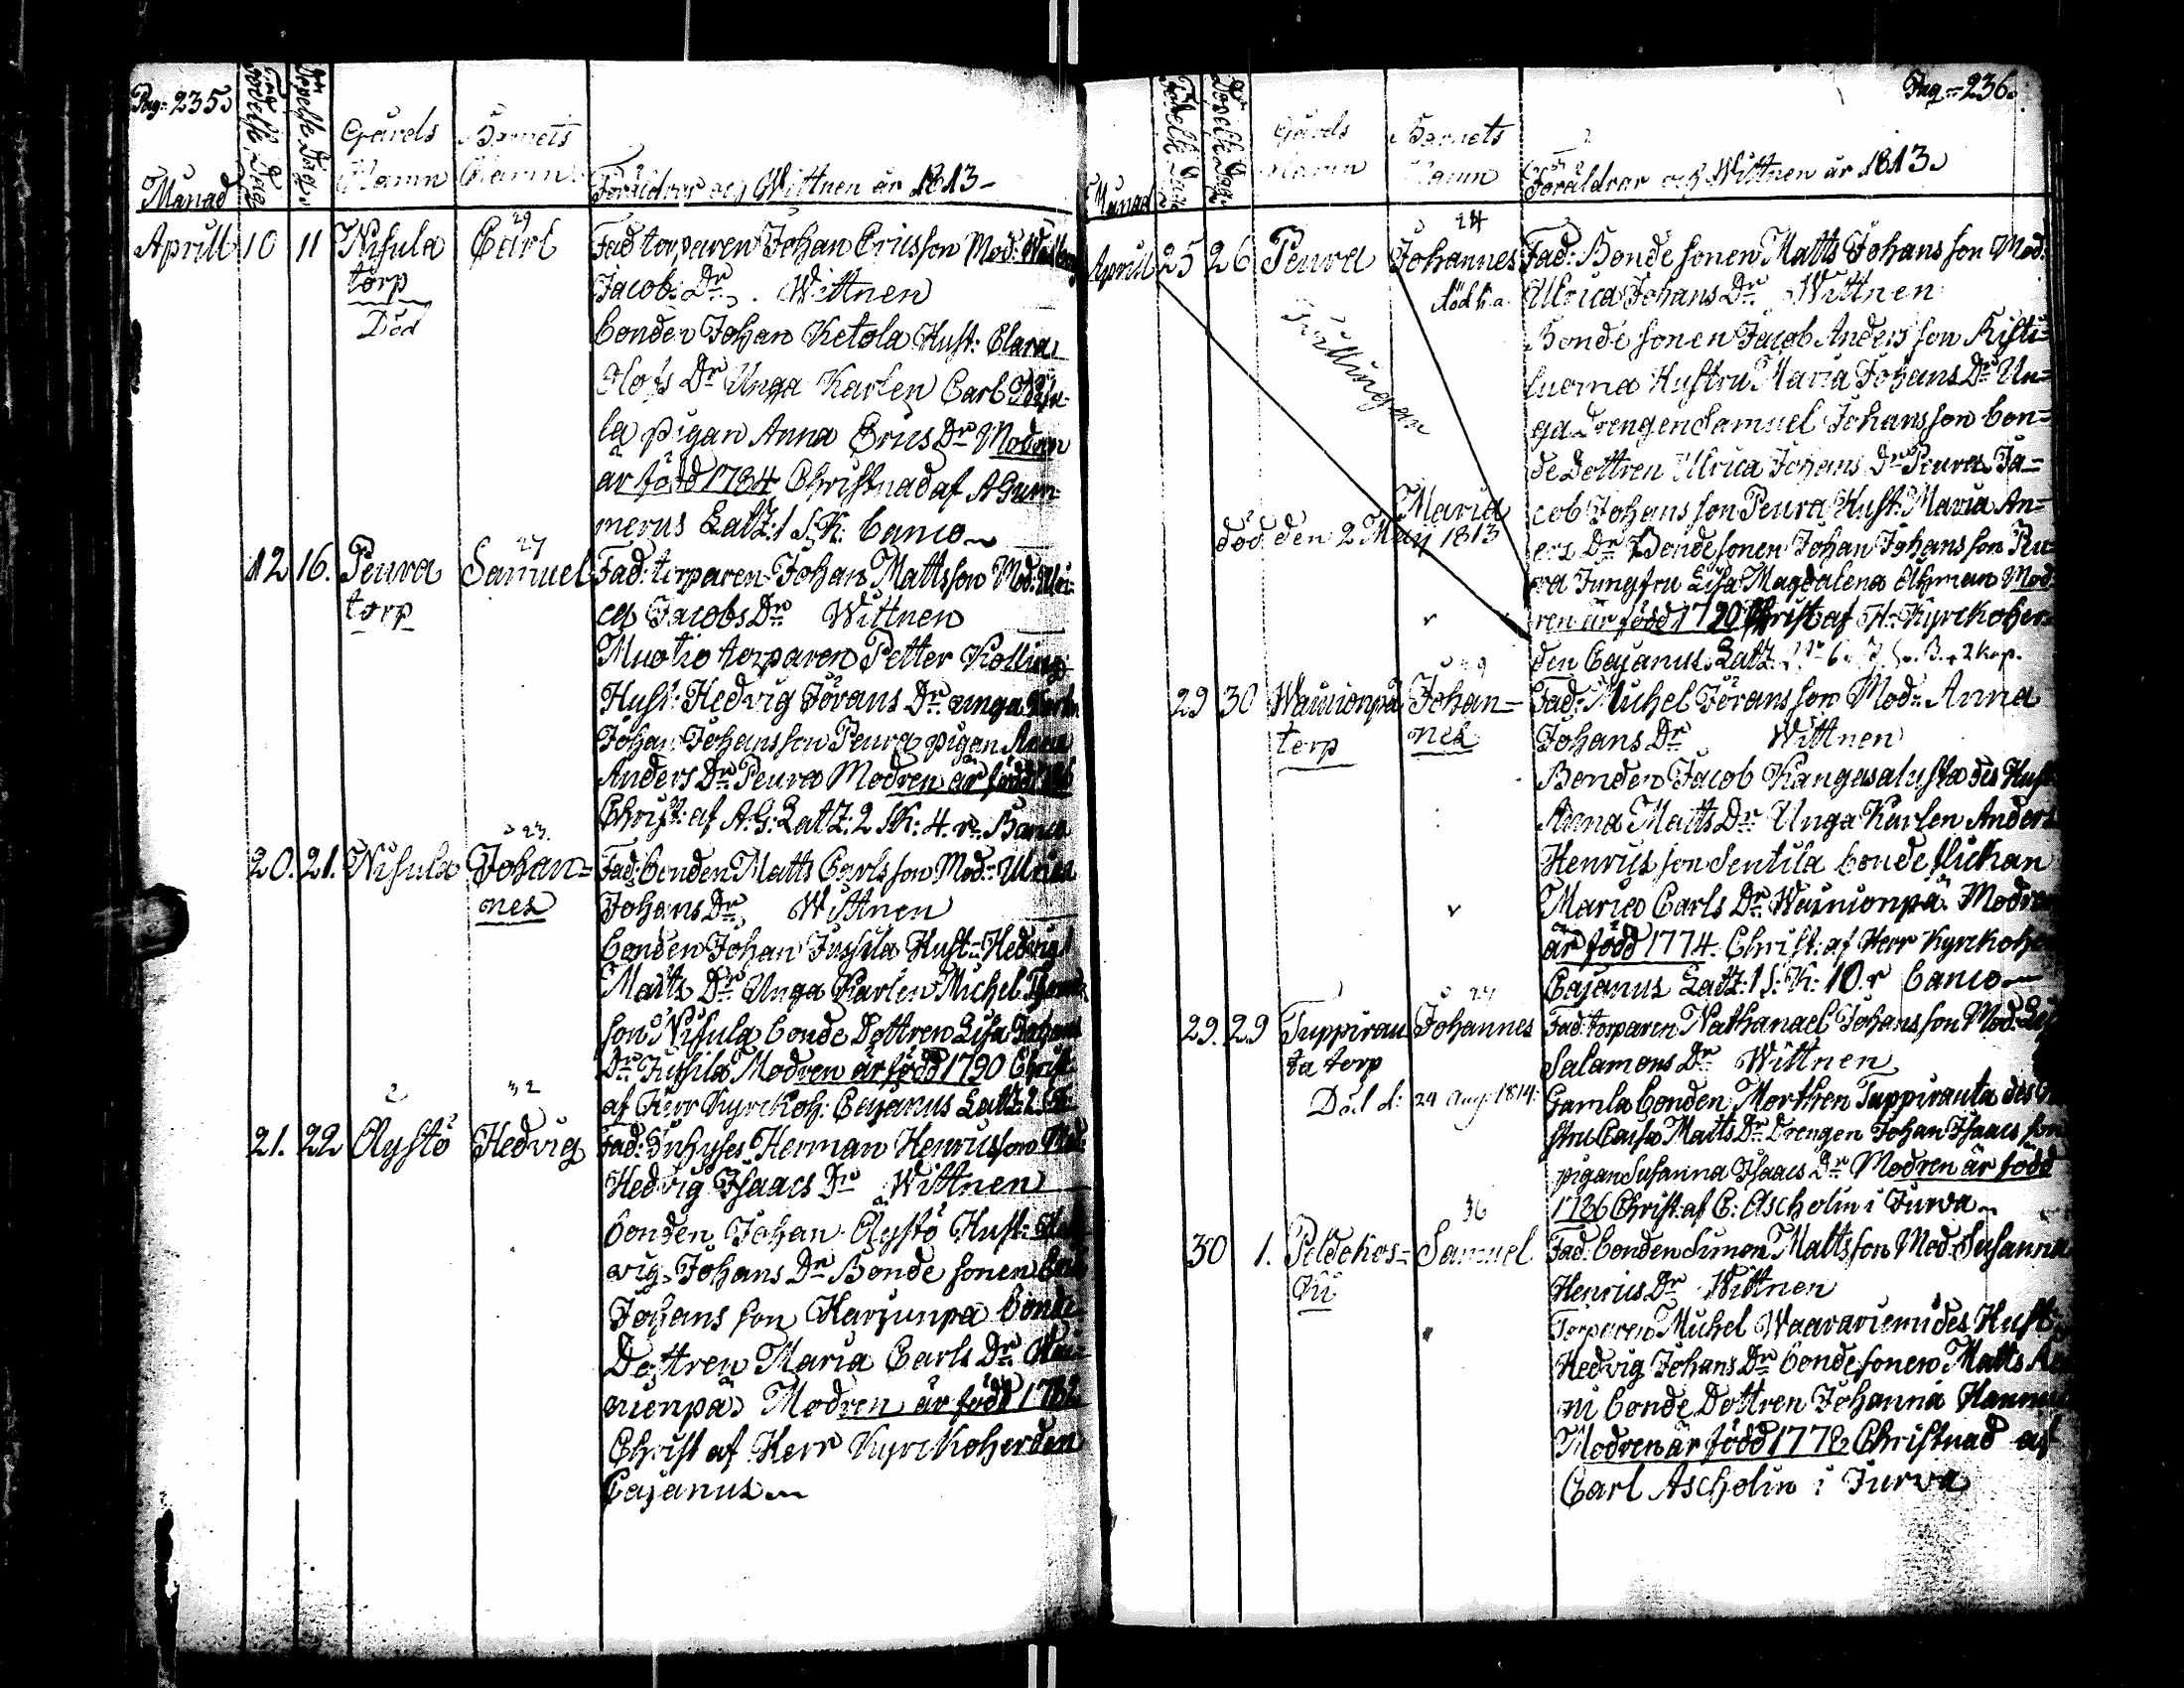 Pag: 235.
Månad
Födelse Dag
Döpelse Dag
Gårds Namn
Barnets Namn
Föräldrar och Wittnen år 1813
Aprill 10 11 Nisula Carl 29 Fad torparen Johan Ericsson Mod:
torp Jacobs Dr. Wittnen
Död bonden Johan Ketola Hust: Clara
Olofs Dr Unga Karlen Carl Nisu-
la pigan Anna Erics Dr Modren
är född 1784 Christnad af A Gum-
merus Latz: 1 S. K: banco
12 16. Peura Samuel 27 Fad: torparen Johan Mattsson Mod: Ulri-
torp ca Jacobs Dr Wittnen
Muotio torparen Petter Kolling
Hust: Hedvig Jörans Dr unga Karlen
Johan Johansson Peura pigan Anna
Anders Dr Peura Modren är född
Christ: af A. G: Latz: 2 SK: 4. r. Banco
20. 21. Nisula Johan= 23. Fad: bonden Matts Carlsson Mod: Ulrica
nes Johans Dr Wittnen
bonden Johan Jussila Hust: Hedvig
Matts Dr Unga Karlen Michel
son Nisula bonde Dottren Lisa Johans
Dr Jussila Modren är född 1790 Christ:
af Herr Kyrckoh: Cajanus Latz:
21. 22 Öystö Hedvig 32 Fad: Inhyses Herman Henricsson Mod:
Hedvig Isaacs Dr Wittnen
bonden Johan Öystö Hust: Hed-
vig Johans Dr Bonde sonen
Johans son Harjunpä bonde
Dottren Maria Carls Dr Wai-
nionpä Modren är född 1782
Christ af Herr Kyrckoherden
Cajanus
Pag= 236.
Månad
Födelse Dag
Döpelse Dag
Gårds Namn
Barnets Namn
Föräldrar och Wittnen år 1813.
Aprill 25 26 Peura Johannes 24 Fad: Bonde sonen Matts Johansson Mod:
död h.a. Ulrica Johans Dr Wittnen
Tvillingar Bonde sonen Jacob Andersson Risti=
luoma Hustru Maria Johans Dr Un=
ga Drengen Samuel Johansson bon=
de Dottren Ulrica Johans Dr Peura Ja=
Maria cob Johansson Peura Hust: Maria An=
död den 2 Maij 1813 ers Dr Bonde sonen Johan Johansson Peu
ra Jungfru Lisa Magdalena Mod
ren är född 1790 Christ af H: Kyrckoher
den Cajanus Latz:
29 30 Wainionpä Johan= Fad: Michel Jöransson Mod: Anna
torp nes Johans Dr Wittnen
Bonden Jacob Kangasalusta des Hust
Anna Matts Dr Unga Karlen Anders
Henricsson Sentila bonde flickan
Maria Carls Dr Wainionpä Modren
är född 1774. Christ: af Herr Kyrckoh
Cajanus Latz: 1 S: K: 10. r banco
29. 29 Tuppirau Johannes 27 Fad: torparen Nathanael Johansson Mod:
ta torp Salamons Dr Wittnen
Död d: 24 Aug: 1814: Gamla bonden Morthen Tuppirauta des
stru Caisa Matts Dr Drengen Johan Isaacs son
pigan Susanna Isaacs Dr Modren är född
1786 Christ: af C: Ascholin i Jurva
30 1. Peldokos= Samuel 36 Fad: bonden Simon Mattsson Mod: Susanna
ki Henrics Dr Wittnen
Torparen Michel Waaraniemi des Hust
Hedvig Johans Dr bonde sonen Matts
ni bonde Dottren Johanna
Modren är född 1778 Christnad af
Carl Ascholin i Jurva